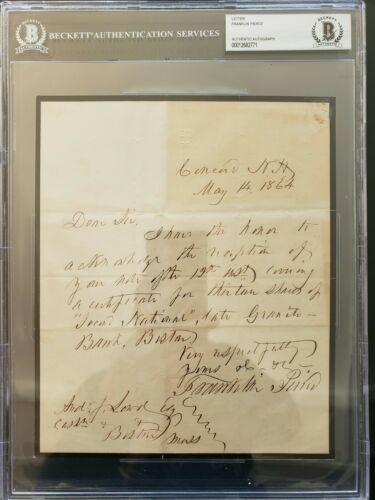 BECKETT AUTHENTICATION SERVICES
LETTER
FRANKLIN PIERCE
AUTHENTIC AUTOGRAPH
00012682771
B
BECKETT
B
BECKETT
Concord N H
May 14, 1864
Dear Sir,
I have the honor to
acknowledge the reception of
your note of the 12th inst, covering
a certificate for thirteen shares of
"Second National", late Granite
Bank, Boston,
Very respectfully
yours &c &c
Franklin Pierce
And. J. Loud Esq
Cash
Boston Mass